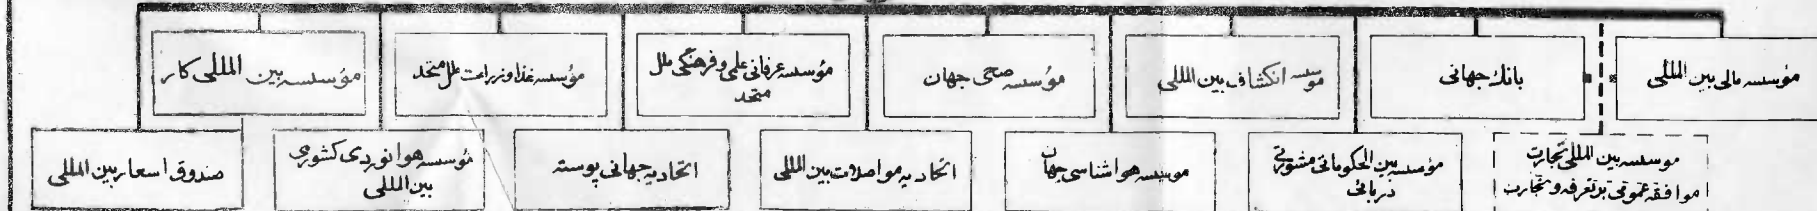 مؤسسه مالی بین المللی
بانک جهانی
مؤسسه انکشاف بین المللی
مؤسسه صحی جهان
مؤسسه عرفانی علمی و فرهنگی ملل
متحد
مؤسسه غذا و زراعت ملل متحد
مؤسسه بین المللی کار
موسسه بین المللی تجارت
موافقه عمومی بر تعرفه و تجارت
مؤسسه بین الحکوماتی مشورتی
دریائی
موسسه هوا شناسی جهان
اتحادیه مواصلات بین المللی
اتحادیه جهانی پوسته
مؤسسه هوا نوردی کشوری
بین المللی
صندوق اسعار بین المللی